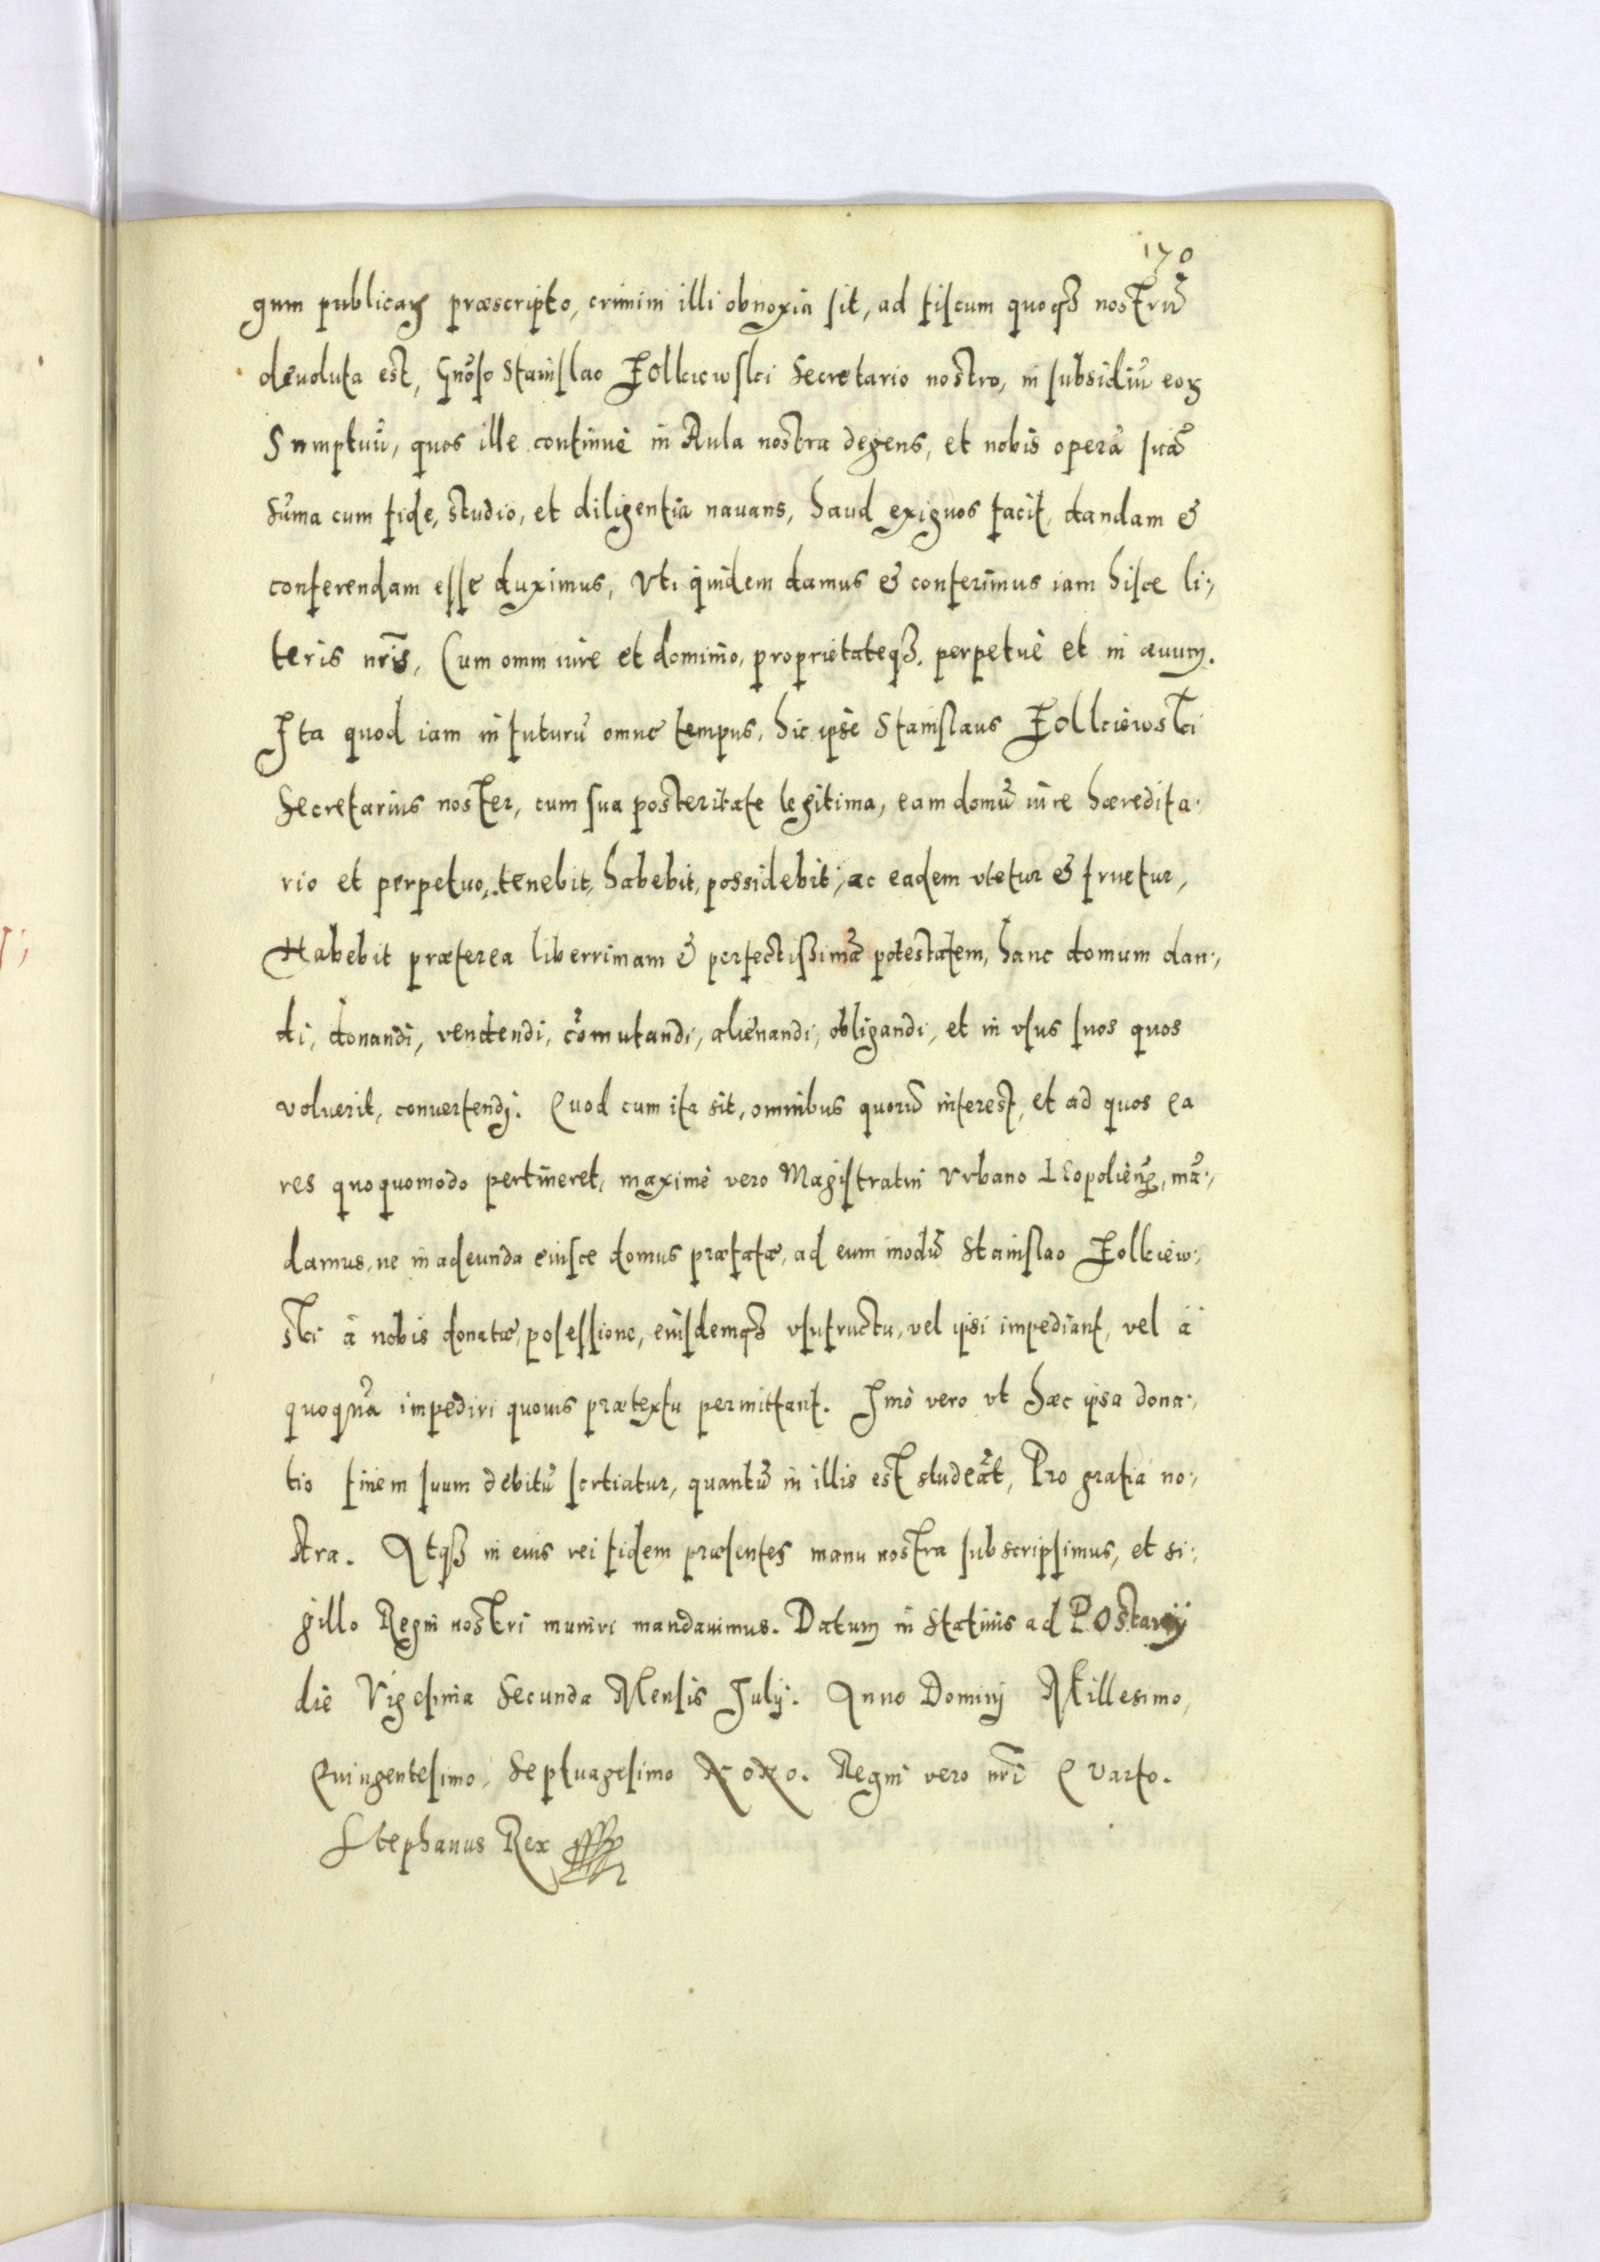 170
gum publicaꝝ præscripto, crimini illi obnoxia sit, ad fiscum quoqꝫ nostrū
deuoluta est, Gnōso Stanislao Zolkiewski Secretario nostro, in subsidiū eoꝝ
Sumptuū, quos ille continuè in Aula nostra degens, et nobis operā suā
sūma cum fide, studio, et diligentia nauans, haud exiguos facit, dandam &
conferendam esse duximus, Vti quidem damus & conferimus iam hisce li:,
teris nr̄is, Cum omni iure et dominio, proprietateqꝫ, perpetuè et in æuum.
Ita quod iam in futurū omne tempus, hic ipse Stanislaus Zolkiewski
Secretarius noster, cum sua posteritate legitima, eam domū iure hæredita:
rio et perpetuo, tenebit, habebit, possidebit, ac eadem vtetur & fruetur,
Habebit præterea liberrimam & perfectissimā potestatem, hanc domum dan:,
di, donandi, vendendi, cōmutandi, alienandi, obligandi, et in vsus suos quos
voluerit, conuertendi. Quod cum ita sit, omnibus quorū interest, et ad quos ea
res quoquomodo pertineret, maximè vero Magistratui Vrbano Leopolien̄, mā:,
damus, ne in adeunda eiusce domus præfatæ, ad eum modū Stanislao Zolkiew:,
ski à nobis donatæ, posessione, eiusdemqꝫ vsufructu, vel ipsi impediant, vel à
quoquā impediri quouis prætextu permittant. Imò vero vt hæc ipsa dona:,
tio finem suum debitū sortiatur, quantū in illis est studeāt, Pro gratia no:,
stra. Atqꝫ in eius rei fidem præsentes manu nostra subscripsimus, et si:,
gillo Regni nostri muniri mandauimus. Datum in Statiuis ad Postawy
die Vigesima Secunda Mensis Julij. Anno Domini Millesimo,
Quingentesimo, Septuagesimo Nono. Regni vero nr̄i Quarto.
Stephanus Rex